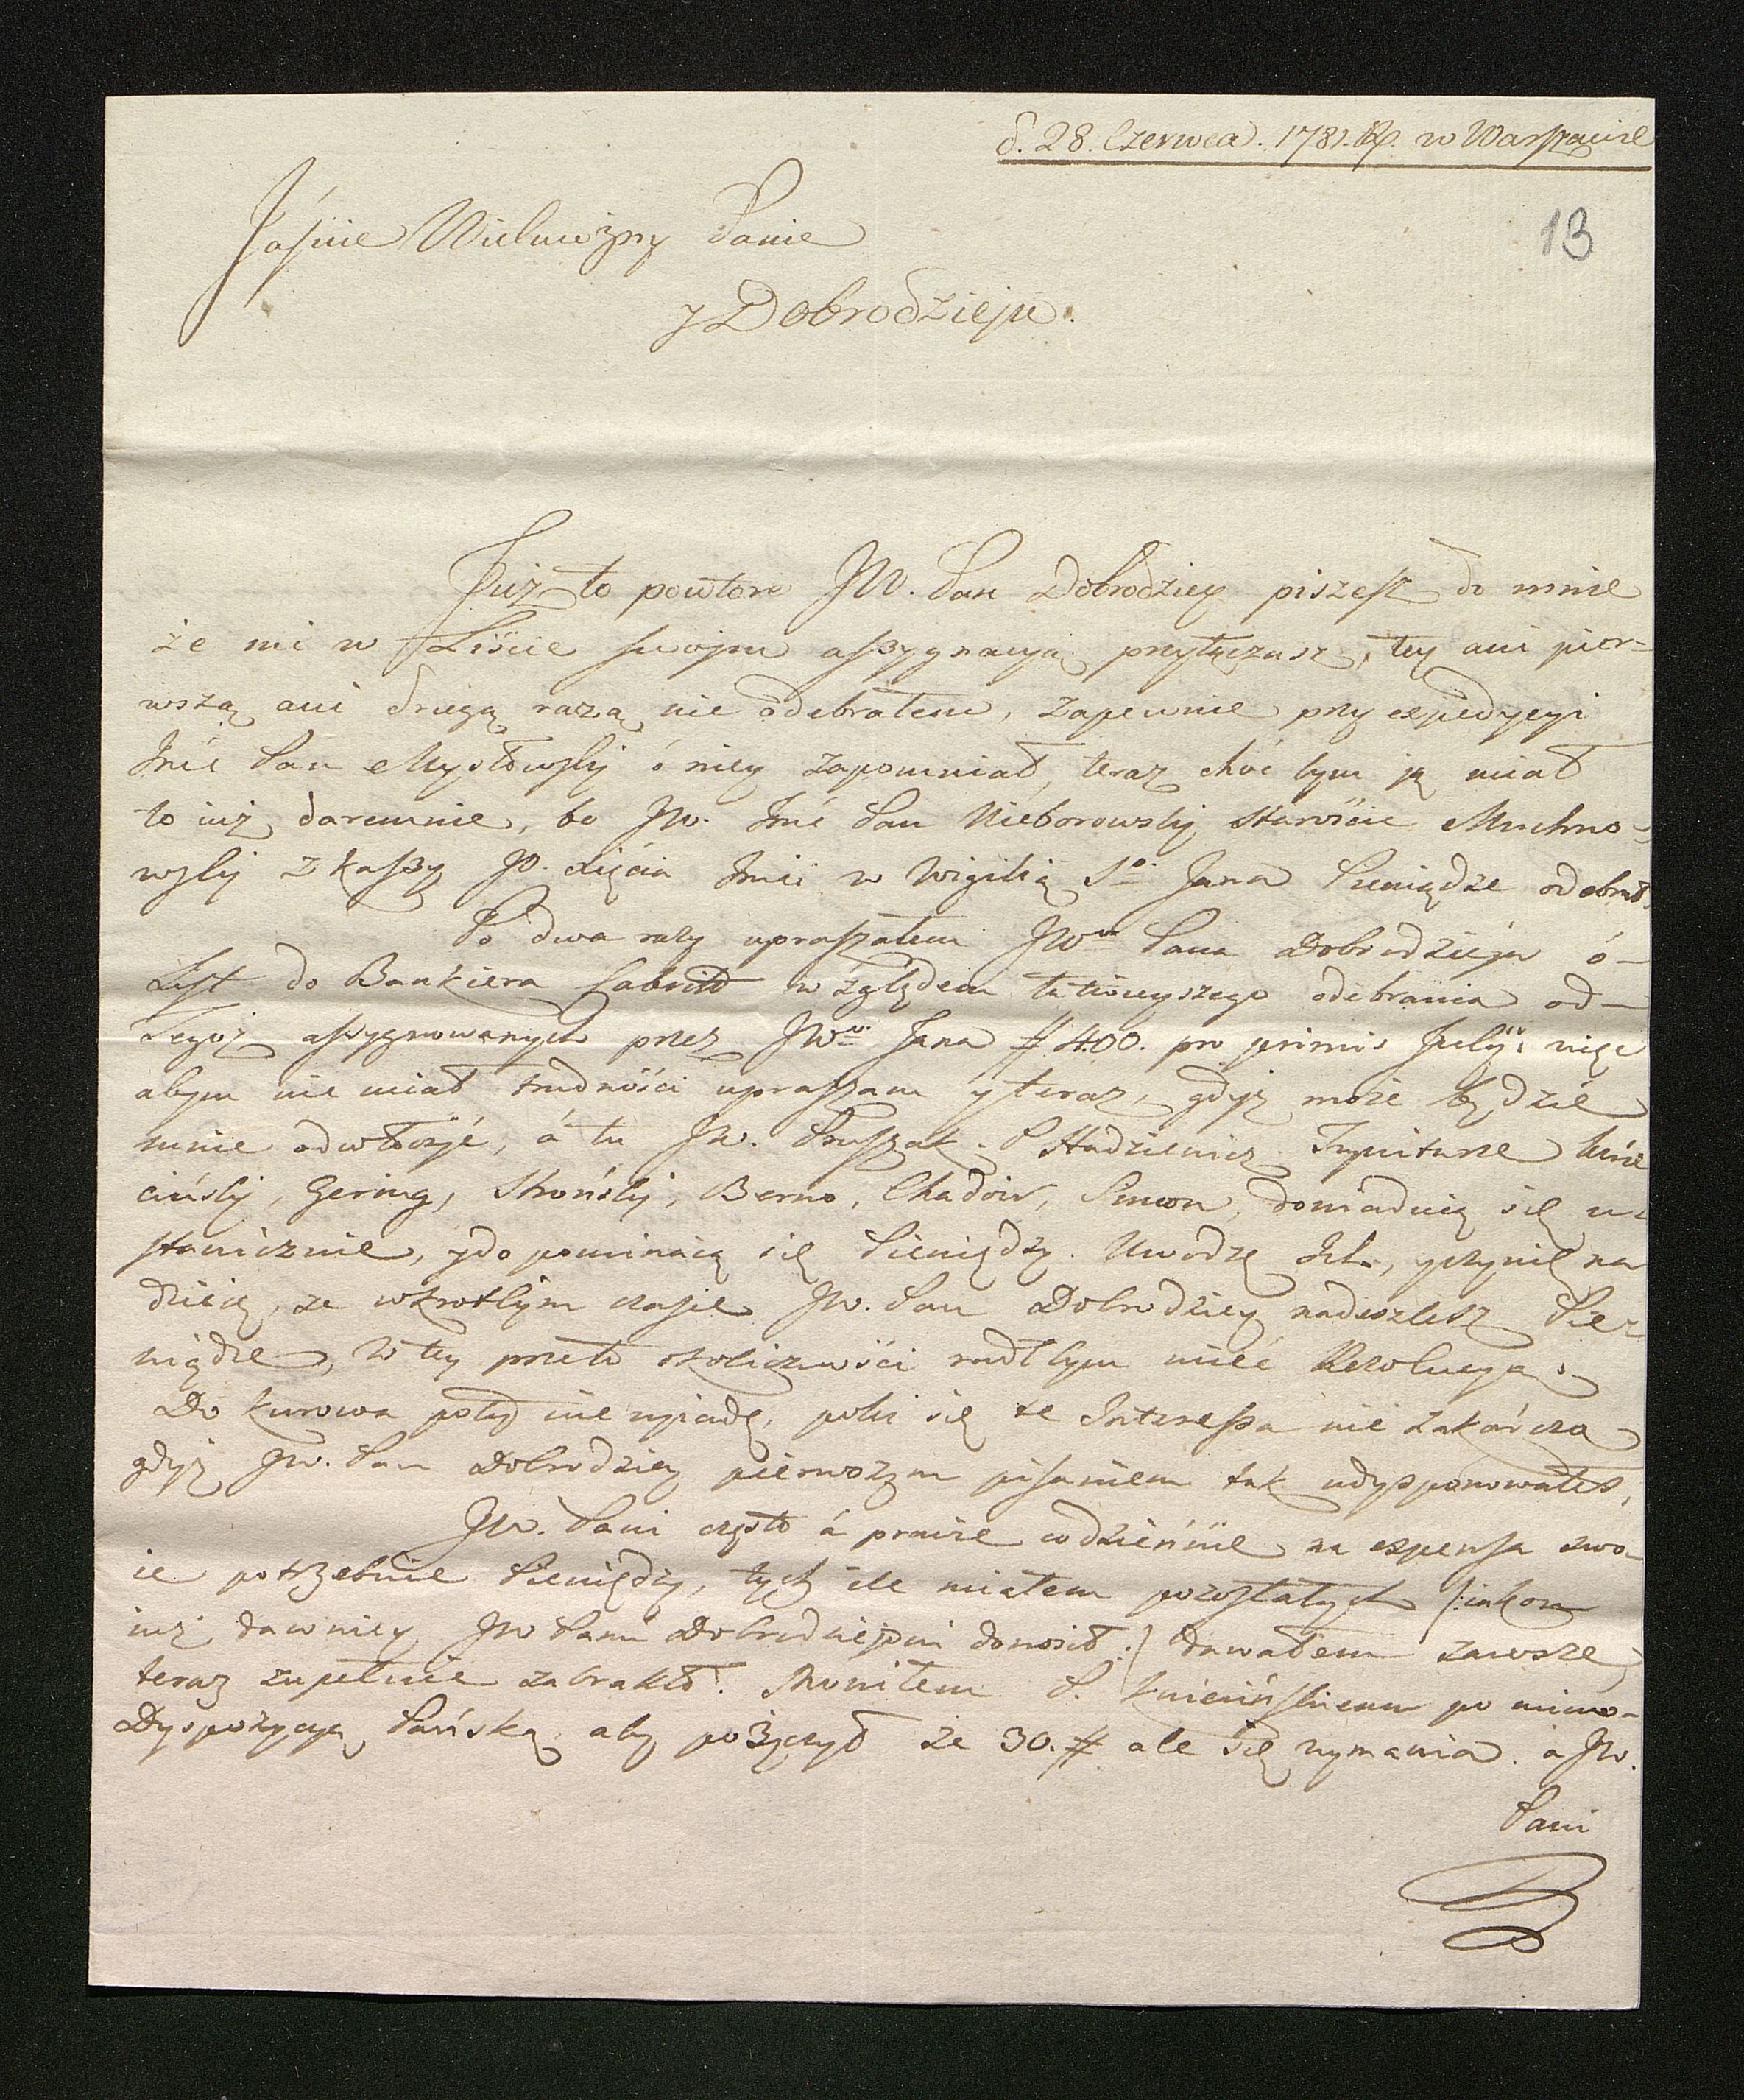 d. 28. Czerwca. 1781. R. w Warszawie
13
Jaśnie Wielmożny Panie
y Dobrodzieju.
Już to powtore JW. Pan Dobrodziey piszesz do mnie
że mi w Liście swojm assygnacyą przyłączasz, tey ani pier-
wszą ani drugą razą nie odebrałem, zapewnie przy expedycyi
Jmć Pan Mysłowskj ó niey zapomniał, teraz choć bym ją miał
to już daremnie, bo JW. Jmć Pan Nieborowskj Starościc Muchno-
wskj z kassy JO. Xięcia Jmci w wigilią So. Jana Pieniądze odebrał.
Po dwa razy upraszałem JWo Pana Dobrodzieja ó
List do Bankiera Cabrit względem odebrania od
Tegoż assygnowanych przez JWo Pana # 400. pro primis Julij, więc
abym nie miał trudności upraszam y teraz, gdyż może będzie
mnie odwłoczyć, á tu JW. Pruszak, P Hadziewicz
cińskj, Gering, Stronskj, Berno, Chadoir, Simon, domaduią się u-
stawicznie, y dopominaią się Pieniędzy. Uwodzę Ich, y czynię na
dzieię, że wkrotkim czasie JW. Pan Dobrodziey nadeszlesz Pie-
niądze, W tey przeto okoliczności rad bym mieć Rezolucyą.
Do Kurowa poty nie wyiadę, poki się te Interessa nie zakończą
gdyż JW. Pan Dobrodziey pierwszym pisaniem tak udysponowałeś,
JW. Pani często á prawie codzieńnie na expensa swo-
ie potrzebuie Pieniędzy, tych ile miałem pozostałych /: iakom
iuż dawniey JW Panu Dobrodziejowi donosił :/ dawałem zawsze,
teraz zupełnie zabrakło. Mowiłem P. Kniecińskiemu po mimo
Dyspozycyą Pańską aby pożyczył ze 30. # ale się wymawia. á JW.
Pani